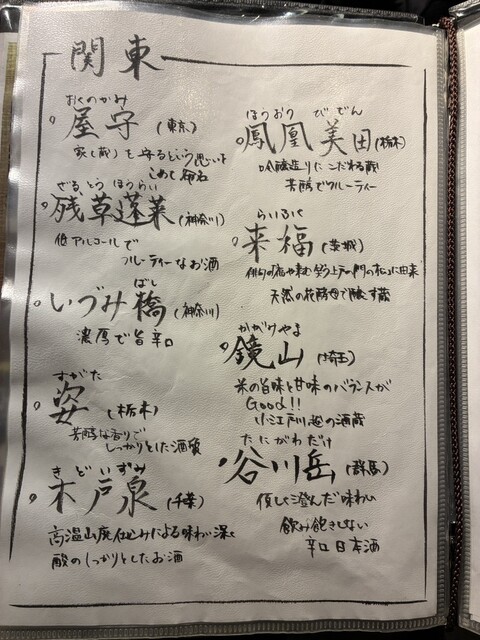 関東
おくのかみ
屋守(東京)
家(蔵)を守るという思いを
こめて命名
ざる、とう ほうらい
残草蓬莱(神奈川)
低アルコールで
フルーティーなお酒
ばし
いづみ橋(神奈川)
濃厚で旨辛口
すがた
姿(栃木)
芳醇な香りで
しっかりとした酒質
きどいずみ
木戸泉(千葉)
高温山廃仕込みによる味わい深く
酸のしっかりとしたお酒
ほうおう びでん
鳳凰美田(栃木)
吟醸造りにこだわる蔵
芳醇でフルーティー
らいふく
来福(茨城)
俳句の「福や来む笑う上戸の門の松」に由来
天然の花酵母で醸す蔵
かがみやま
鏡山(埼玉)
米の旨味と甘味のバランスが
Good!!
小江戸川越の酒蔵
たにがわだけ
谷川岳(群馬)
優しく澄んだ味わい
飲み飽きしない
辛口日本酒